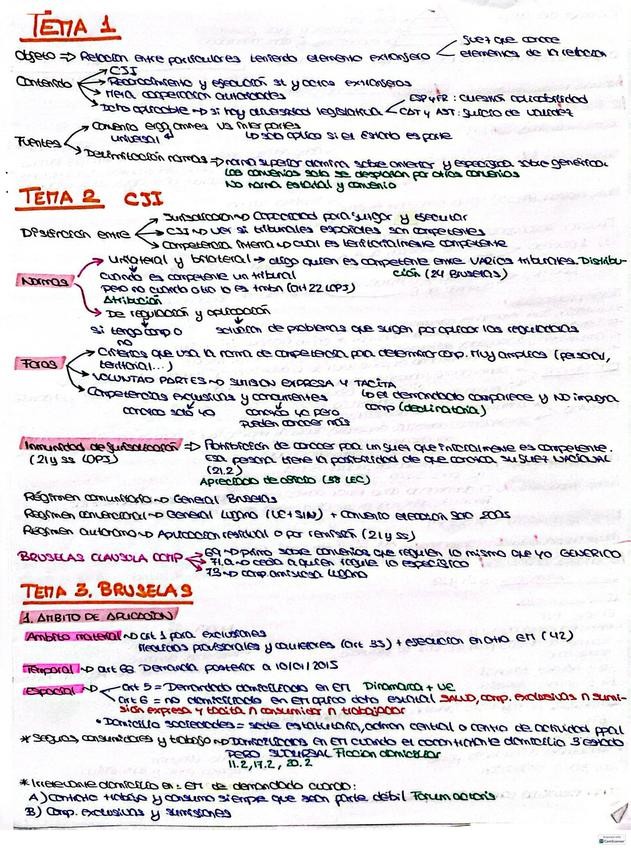 TEMA 1
Objeto ⇒ Relación entre particulares teniendo elemento extranjero
Juez que conoce
elementos de la relación
Contenido
CJI
Reconocimiento y ejecución st y actos extranjeros
Mera cooperación autoridades
Dcho aplicable → si hay diversidad legislativa
ESP y FR: cuestión aplicabilidad
CAST y AST: Juicio de validez
Fuentes
Convenio erga omnes vs interpartes
universal
Lo solo aplico si el Estado es parte
Delimitación normas ⇒ norma superior domina sobre anterior y específica sobre genérica.
Los convenios solo se desplazan por otros convenios
No norma estatal y convenio
TEMA 2 CJI
Distinción entre
Jurisdicción → Capacidad para juzgar y ejecutar
CJI → ver si tribunales españoles son competentes
Competencia interna → cual es territorialmente competente
Normas
Unilateral y bilateral → digo quien es competente entre VARIOS tribunales. Distribu-
ción (24 Bruselas)
Cuando es competente un tribunal
pero no cuando otro lo es tmbn (art 22 LOPJ)
Atribución
De regulación y aplicación
si tengo comp o
no
solución de problemas que surgen por aplicar las reguladoras
Foros
Criterios que usa la norma de competencia para determinar comp. Muy amplios (personal,
territorial...)
VOLUNTAD PARTES → SUMISION EXPRESA Y TACITA
Lo el demandado comparece y NO impugna
comp (declinatoria)
Competencias exclusivas y concurrentes
conozco solo yo
conozco yo pero
pueden conocer más
Inmunidad de jurisdicción
(21 y ss LOPJ)
⇒ Prohibición de conocer para un juez que inicialmente es competente.
Esa persona tiene la posibilidad de que conozca su juez NACIONAL
(21.2)
Apreciado de oficio (38 LEC)
Régimen comunitario → General Bruselas
Régimen convencional → General Lugano (UE+SIN) + convenio elección foro 2005
Régimen autónomo → Aplicación residual o por remisión (21 y ss)
BRUSELAS CLAUSULA COMP
69 → primo sobre convenios que regulen lo mismo que yo GENERICO
71.a → cedo a quien regule lo específico
73 → comp.
TEMA 3. BRUSELAS
1. AMBITO DE APLICACIÓN
Ambito material → art 1 para exclusiones
Medidas provisionales y cautelares (art 35) + ejecución en otro EM (42)
Temporal → art 66 Demanda posterior a 10/01/2015
Espacial
art 5 = Demandado domiciliado en EM Dinamarca + UE
art 6 = no domiciliado en EM aplico dcho estatal SALVO, comp. exclusivas n sumi-
sión expresa y tacita n consumidor n trabajador
• Domicilio sociedades = sede estatutaria, admon central o centro de actividad ppal
* Seguros consumidores y trabajo → Domiciliados en EM cuando el cocontratante domicilio 3º estado
PERO SUCURSAL Ficción domiciliar
11.2, 17.2, 20.2
* Irrelevante domicilio en EM de demandado cuando:
A) contrato trabajo y consumo siempre que sean parte débil Forum actoris
B) Comp. exclusivas y sumisiones
CamScanner